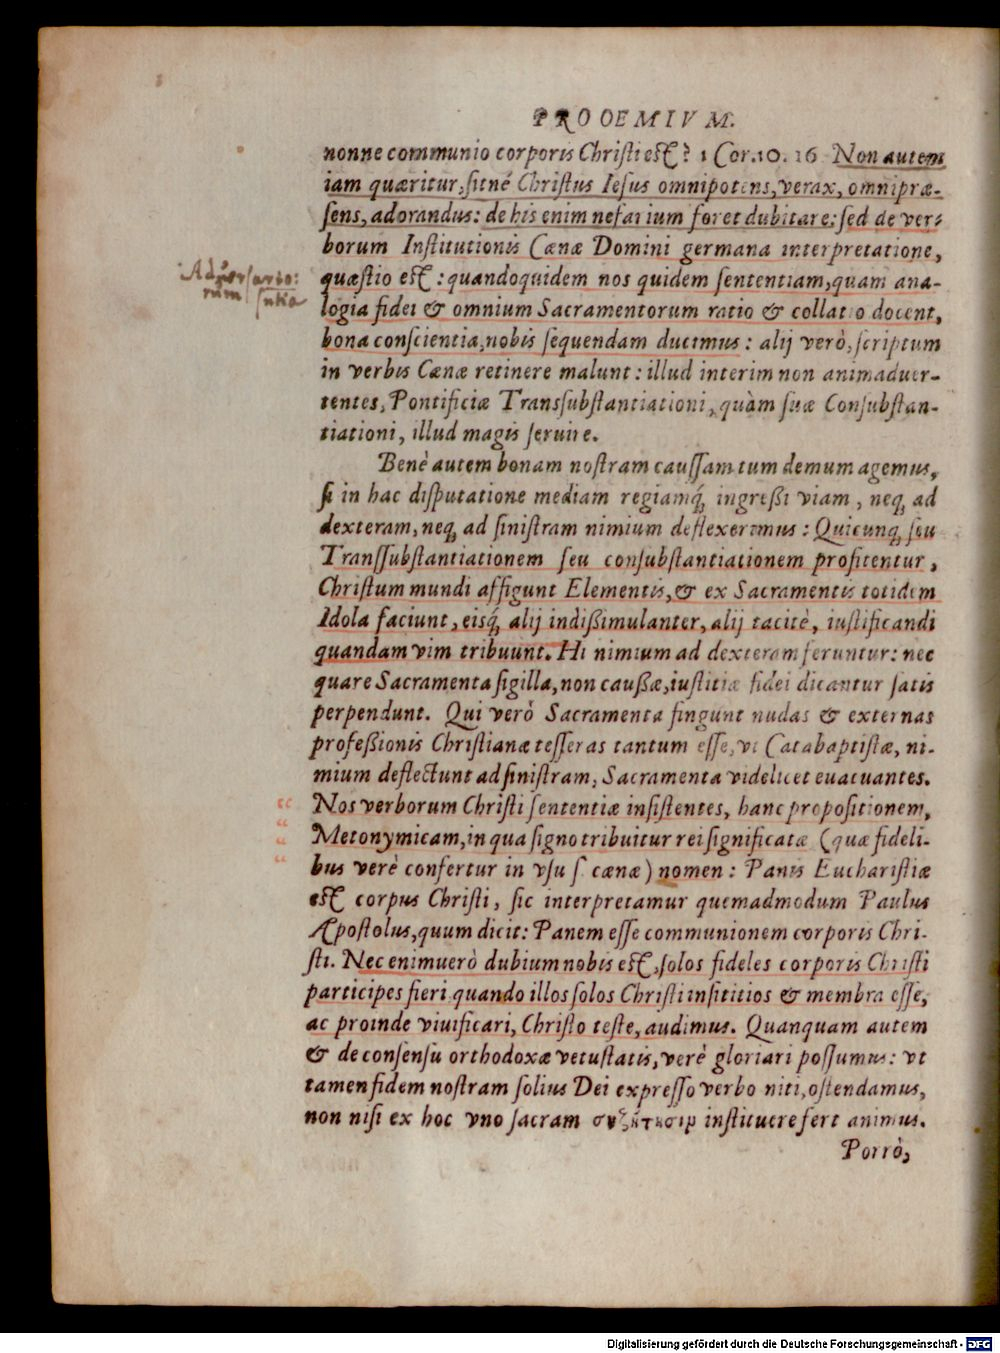 PROOEMIVM.
nonne communio corporis Christi est? 1 Cor.10. 16 Non autem
iam quæritur, sitné Christus Iesus omnipotens, verax, omnipræ-
sens, adorandus: de his enim nefarium foret dubitare: sed de ver-
borum Institutionis Cænæ Domini germana interpretatione,
quæstio est: quandoquidem nos quidem sententiam, quam ana-
logia fidei & omnium Sacramentorum ratio & collatio docent,
bona conscientia, nobis sequendam ducimus: alij verò, scriptum
in verbis Cænæ retinere malunt: illud interim non animaduer-
tentes, Pontificiæ Transsubstantiationi, quàm suæ Consubstan-
tiationi, illud magis seruire.
Benè autem bonam nostram caussam tum demum agemus,
si in hac disputatione mediam regiamq́; ingreßi viam, neq; ad
dexteram, neq; ad sinistram nimium deflexerimus: Quicunq; seu
Transsubstantiationem seu consubstantiationem profitentur,
Christum mundi affigunt Elementis, & ex Sacramentis totidem
Idola faciunt, eisq́; alij indißimulanter, alij tacitè, iustificandi
quandam vim tribuunt. Hi nimium ad dexteram feruntur: nec
quare Sacramenta sigilla, non caußæ, iustitiæ fidei dicantur satis
perpendunt. Qui verò Sacramenta fingunt nudas & externas
profeßionis Christianæ tesseras tantum esse, vt Catabaptistæ, ni-
mium deflectunt ad sinistram, Sacramenta videlicet euacuantes.
“ Nos verborum Christi sententiæ insistentes, hanc propositionem,
“ Metonymicam, in qua signo tribuitur rei significatæ (quæ fideli-
“ bus verè confertur in vsu s. cænæ) nomen: Panis Eucharistiæ
est corpus Christi, sic interpretamur quemadmodum Paulus
Apostolus, quum dicit: Panem esse communionem corporis Chri-
sti. Nec enimuerò dubium nobis est, solos fideles corporis Christi
participes fieri quando illos solos Christi insititios & membra esse,
ac proinde viuificari, Christo teste, audimus. Quanquam autem
& de consensu orthodoxæ vetustatis, verè gloriari possumus: vt
tamen fidem nostram solius Dei expresso verbo niti, ostendamus,
non nisi ex hoc vno sacram συζήτησιν instituere fert animus.
Porrò,
Aduersario:
rum sn̄tia
Digitalisierung gefördert durch die Deutsche Forschungsgemeinschaft - DFG